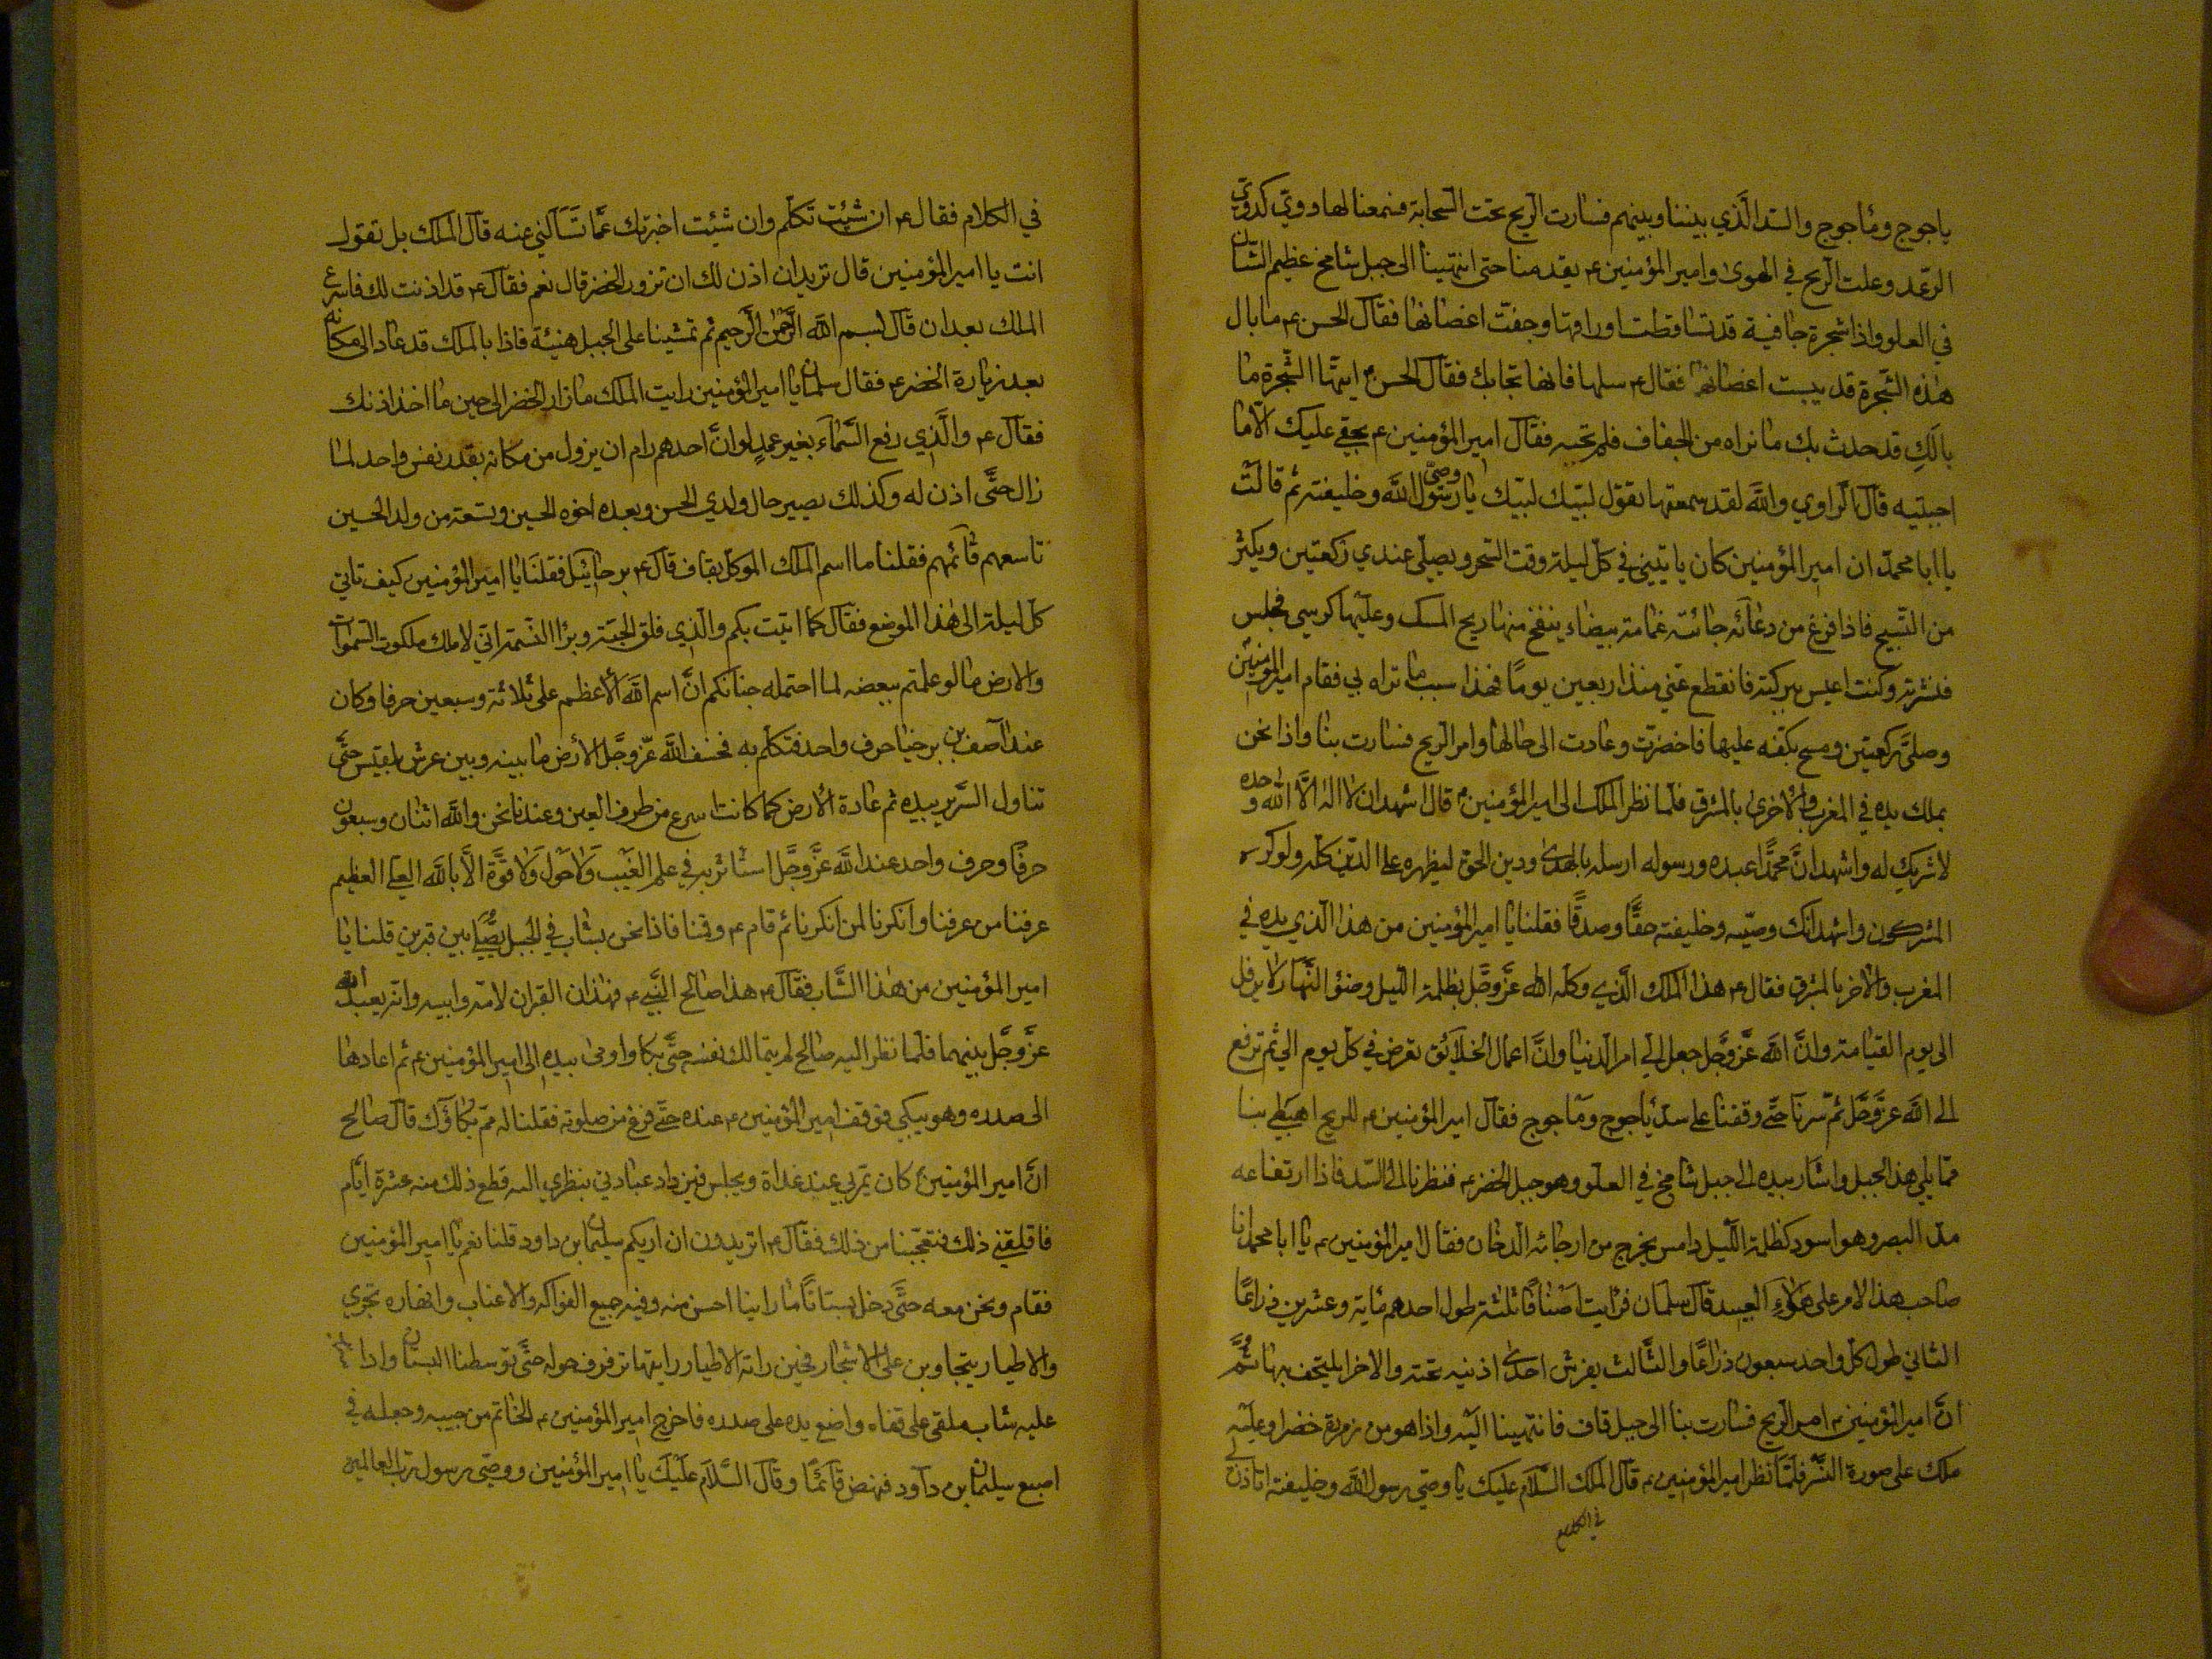 ياجوج وماجوج والسد الَّذي بيننا وبينهم فسارت الريح تحت السحابة فسمعنا لها دويّ كدويّ
الرّعد وعلت الريح في الهوى وامير المؤمنين ع يقدمنا حتى انتهينا الى جبل شامخ عظيم الشان
في العلو واذا شجرة جافية قد تساقطت اوراقها وجفت اغصانها فقال الحسن ع ما بال
هذه الشجرة قد يبست اغصانها فقال ع سلها فانها تجابك فقال الحسن ع ايتها الشجرة ما
بالَكِ قد حدث بك ما نراه من الجفاف فلم تجبه فقال امير المؤمنين ع بحقي عليك الّا ما
اجبتيه قال الراوي والله لقد سمعتها تقول لبيك لبيك يا وصيّ رسول الله وخليفته ثم قالت
يا ابا محمد ان امير المؤمنين كان ياتيني في كل ليلة وقت السحر ويصلى عندي ركعتين ويكثر
من التسبيح فاذا فرغ من دعائه جائته غمامة بيضاء ينفخ منها ريح المسك وعليها كرسي فجلس
فتسير به وكنت اعيش ببركته فانقطع عني منذ اربعين يومًا فهذا سبب ما تراه بي فقام امير المؤمنين
وصلّى ركعتين ومسح بكفه عليها فاخضرت وعادت الى حالها وامر الريح فسارت بنا واذا نحن
بملك يده في المغرب والاخرى بالمشرق فلما نظر الملك الى امير المؤمنين ع قال اشهد ان لا اله الّا الله وحده
لا شريك له واشهد انَّ محمَّدًا عبده ورسوله ارسله بالهدى ودين الحق ليظهره على الدّين كله ولو كره
المشركون واشهد انك وصيّه وخليفته حقًّا وصدقًا فقلنا يا امير المؤمنين من هذا الذي يده في
المغرب والاخر بالمشرق فقال ع هذا الملك الَّذي وكله الله عزَّوجَّل بظلمة الليل وضوُ النَّهار لا يزل
الى يوم القيامة وانَّ الله عزَّوجَّل جعل الي امر الدنيا وانَّ اعمال الخلائق تعرض في كل يوم الي ثم ترفع
الى الله عزَّوجَّل ثم سرنا حتّى وقفنا على سدّ ياجوج وماجوج فقال امير المؤمنين ع للريح اهبطي بنا
ممّا يلي هذا الجبل واشار بيده الى جبل شامخ في العلو وهو جبل الخضر ع فنظرنا الى السّد فاذا ارتفاعه
مدّ البصر وهو اسود كظلمة الليل دامس يخرج من ارجائه الدخان فقال امير المؤمنين ع يا ابا محمد انا
صاحب هذا الامر على هؤلاءِ العبيد قال سلمان فرايت اصنافًا ثلثة طول احدهم مائة وعشرين ذراعًا
الثاني طول كل واحد سبعون ذراعًا والثالث يفرش احدى اذنيه تحته والاخرا يلتحف بها ثُمَّ
انَّ امير المؤمنين ع امر الريح فسارت بنا الى جبل قاف فانتهينا اليه واذا هو من زمردة خضرا وعليه
ملك على صورة النّسر فلمّا نظر امير المؤمنين ع قال الملك السّلام عليك يا وصيّ رسول الله وخليفته اتاذن لي
في الكلام
في الكلام فقال ع ان شئت تكلم وان شئت اخبرتك عمّا تسألني عنه قال الملك بل تقول
انت يا امير المؤمنين قال تريد ان اذن لك ان تزور الخضر قال نعم فقال ع قد اذنت لك فاسرع
الملك بعد ان قال بسم الله الرَّحمٰن الرَّحيم ثم تمشينا على الجبل هنيئة فاذا بالملك قد عاد الى مكانه
بعد زيارة الخضر ع فقال سلمان يا امير المؤمنين رايت الملك ما زار الخضر الى حين ما اخذ اذنك
فقال ع والَّذي رفع السَّماء بغير عمدٍ لو انَّ احدهم رام ان يزول من مكانه بقدر نفس واحد لما
زال حتَّى اذن له وكذلك يصير حال ولدي الحسن وبعده اخوه الحسين وتسعة من ولد الحسين
تاسعهم قائمهم فقلنا ما اسم الملك الموكل بقاف قال ع برجائيل فقلنا يا امير المؤمنين كيف تاتي
كل ليلة الى هذا الموضع فقال كما اتيت بكم والذي فلق الحبّة وبرأ النسمة اني لاملك ملكوت السموات
والارض ما لو علمتم ببعضه لما احتمله جنانكم انَّ اسم الله الأعظم على ثلاثة وسبعين حرفا وكان
عند آصف بن برخيا حرف واحد فتكلم به فخسف الله عزّ وجَّل الأرض ما بينه وبين عرش بلقيس حتَّى
تناول السَّرير بيده ثم عادة الأرض كما كانت اسرع من طرف العين وعندنا نحن والله اثنان وسبعون
حرفًا وحرف واحد عند الله عزَّوجَّل استاثر به في علم الغيب وَلا حَولَ وَلا قوَّة الَّا بالله العلي العظيم
عرفنا من عرفنا وانكرنا من انكرنا ثم قام ع وقمنا فاذا نحن بشاب في الجبل يصَّلي بين قبرين قلنا يا
امير المؤمنين من هذا الشَّاب فقال ع هذا صالح النَّبي ع فهذان القبران لامّه وابيه وانه يعبد الله
عزَّوجَّل بينهما فلما نظر اليه صالح لم يتمالك نفسه حتَّى بكا واومى بيده الى امير المؤمنين ع ثم اعادها
الى صدره وهو يبكي فوقف امير المؤمنين ع عنده حتّى فرغ من صلوته فقلنا له ممّ بكاؤك قال صالح
انَّ امير المؤمنين ع كان يمر بي عند غداة ويجلس فيزداد عبادتي بنظري اليه قطع ذلك منه عشرة ايّام
فاقلقني ذلك فتعجّبنا من ذلك فقال ع اتريدون ان اريكم سليمان بن داود قلنا نعم يا امير المؤمنين
فقام ونحن معه حتَّى دخل بستانًا ما راينا احسن منه وفيه جميع الفواكه والاعناب وانهاره تجري
والاطيار يتجاوبن على الاشجار فحين راته الاطيار رايتها ترفرف حوله حتَّى توسطنا البستان واذا
عليه شاب ملقى على قفاه واضع يده على صدره فاخرج امير المؤمنين ع الخاتم من جيبه وجعله في
اصبع سليمان بن داود فنهض قائمًا وقال السَّلام عليك يا امير المؤمنين ووصّي رسول رب العالمين